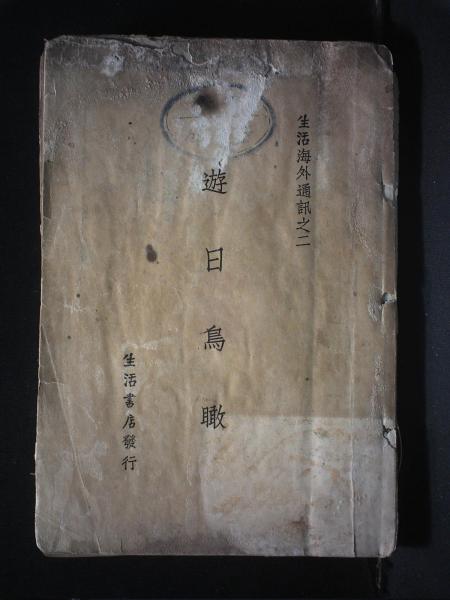 生活海外通訊之二
遊日鳥瞰
生活書店發行